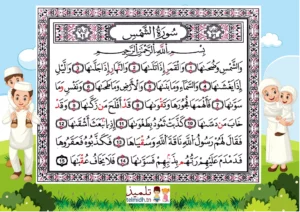 سُورَةُ الشَّمْسِ
بِسْمِ اللَّهِ الرَّحْمَٰنِ الرَّحِيمِ
وَالشَّمْسِ وَضُحَىٰهَا وَالْقَمَرِ إِذَا تَلَىٰهَا وَالنَّهَارِ إِذَا جَلَّىٰهَا وَالَّيْلِ
إِذَا يَغْشَىٰهَا وَالسَّمَآءِ وَمَا بَنَىٰهَا وَالْأَرْضِ وَمَا طَحَىٰهَا وَنَفْسٍ وَمَا
سَوَّىٰهَا فَأَلْهَمَهَا فُجُورَهَا وَتَقْوَىٰهَا قَدْ أَفْلَحَ مَن زَكَّىٰهَا وَقَدْ
خَابَ مَن دَسَّىٰهَا كَذَّبَتْ ثَمُودُ بِطَغْوَىٰهَا إِذِ انۢبَعَثَ أَشْقَىٰهَا
فَقَالَ لَهُمْ رَسُولُ اللَّهِ نَاقَةَ اللَّهِ وَسُقْيَٰهَا فَكَذَّبُوهُ فَعَقَرُوهَا
فَدَمْدَمَ عَلَيْهِمْ رَبُّهُم بِذَنۢبِهِمْ فَسَوَّىٰهَا فَلَا يَخَافُ عُقْبَٰهَا
تلميذ
telmidh.tn